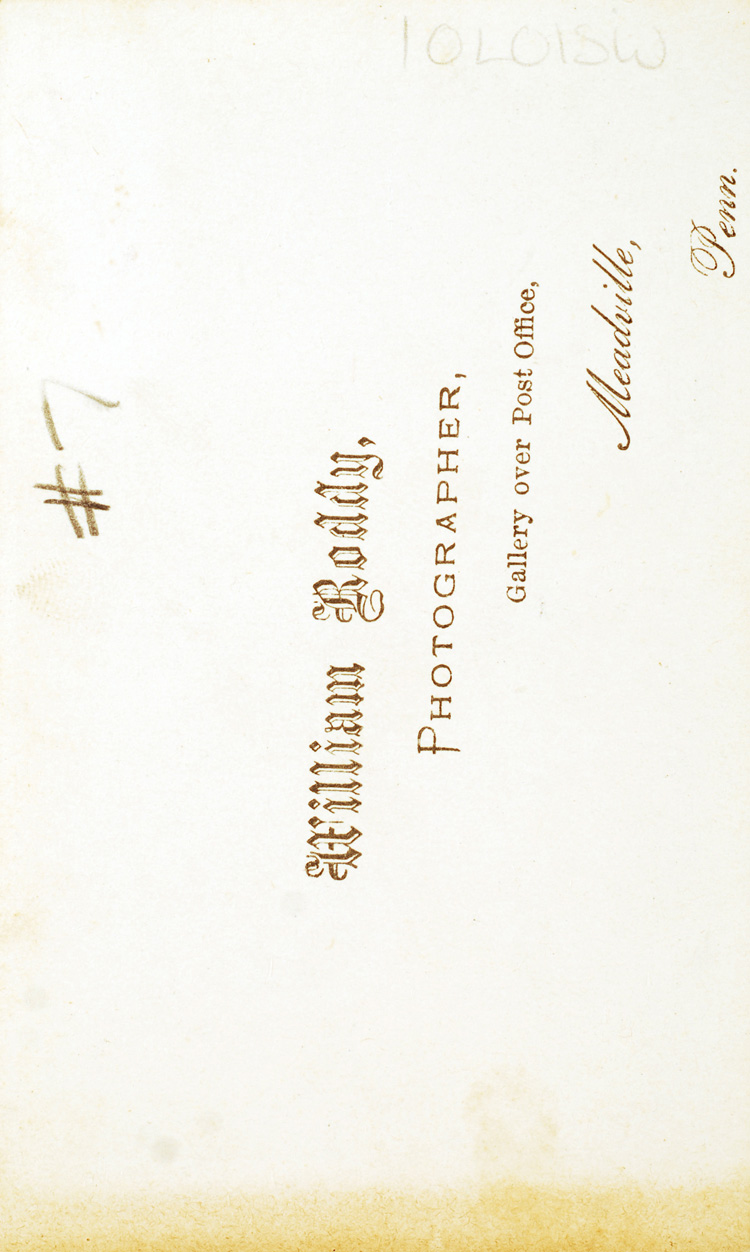 #7
William Roddy,
PHOTOGRAPHER,
Gallery over Post Office,
Meadville,
Penn.